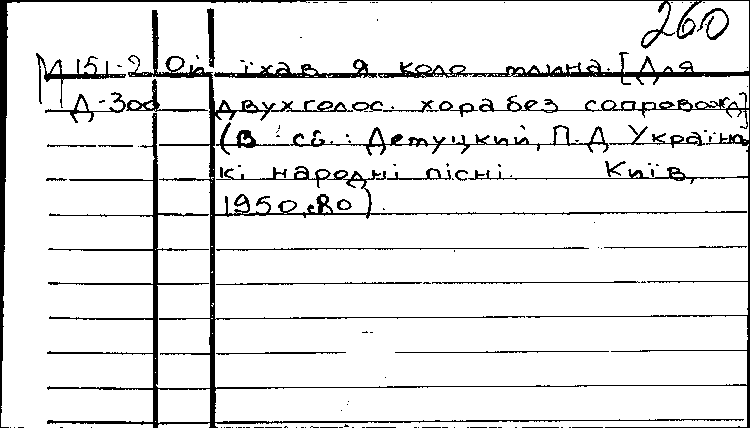 260
М 151-2 Ой їхав я коло млина. [Для
Д-300 двухголос. хора без сопровожд]
(В сб.: Демуцкий, П.Д Українсь
кі народні пісні. Київ,
1950, с. 80).